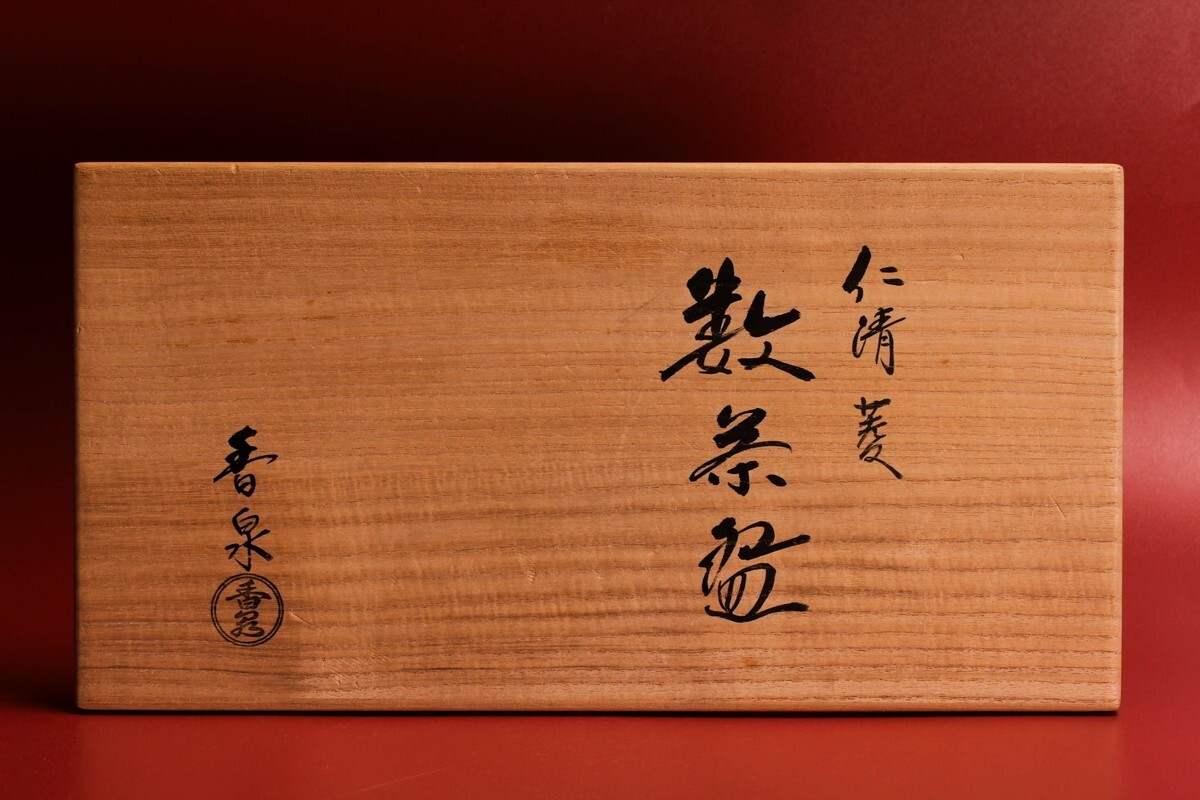 仁清 菱
数茶盌
香泉
香泉